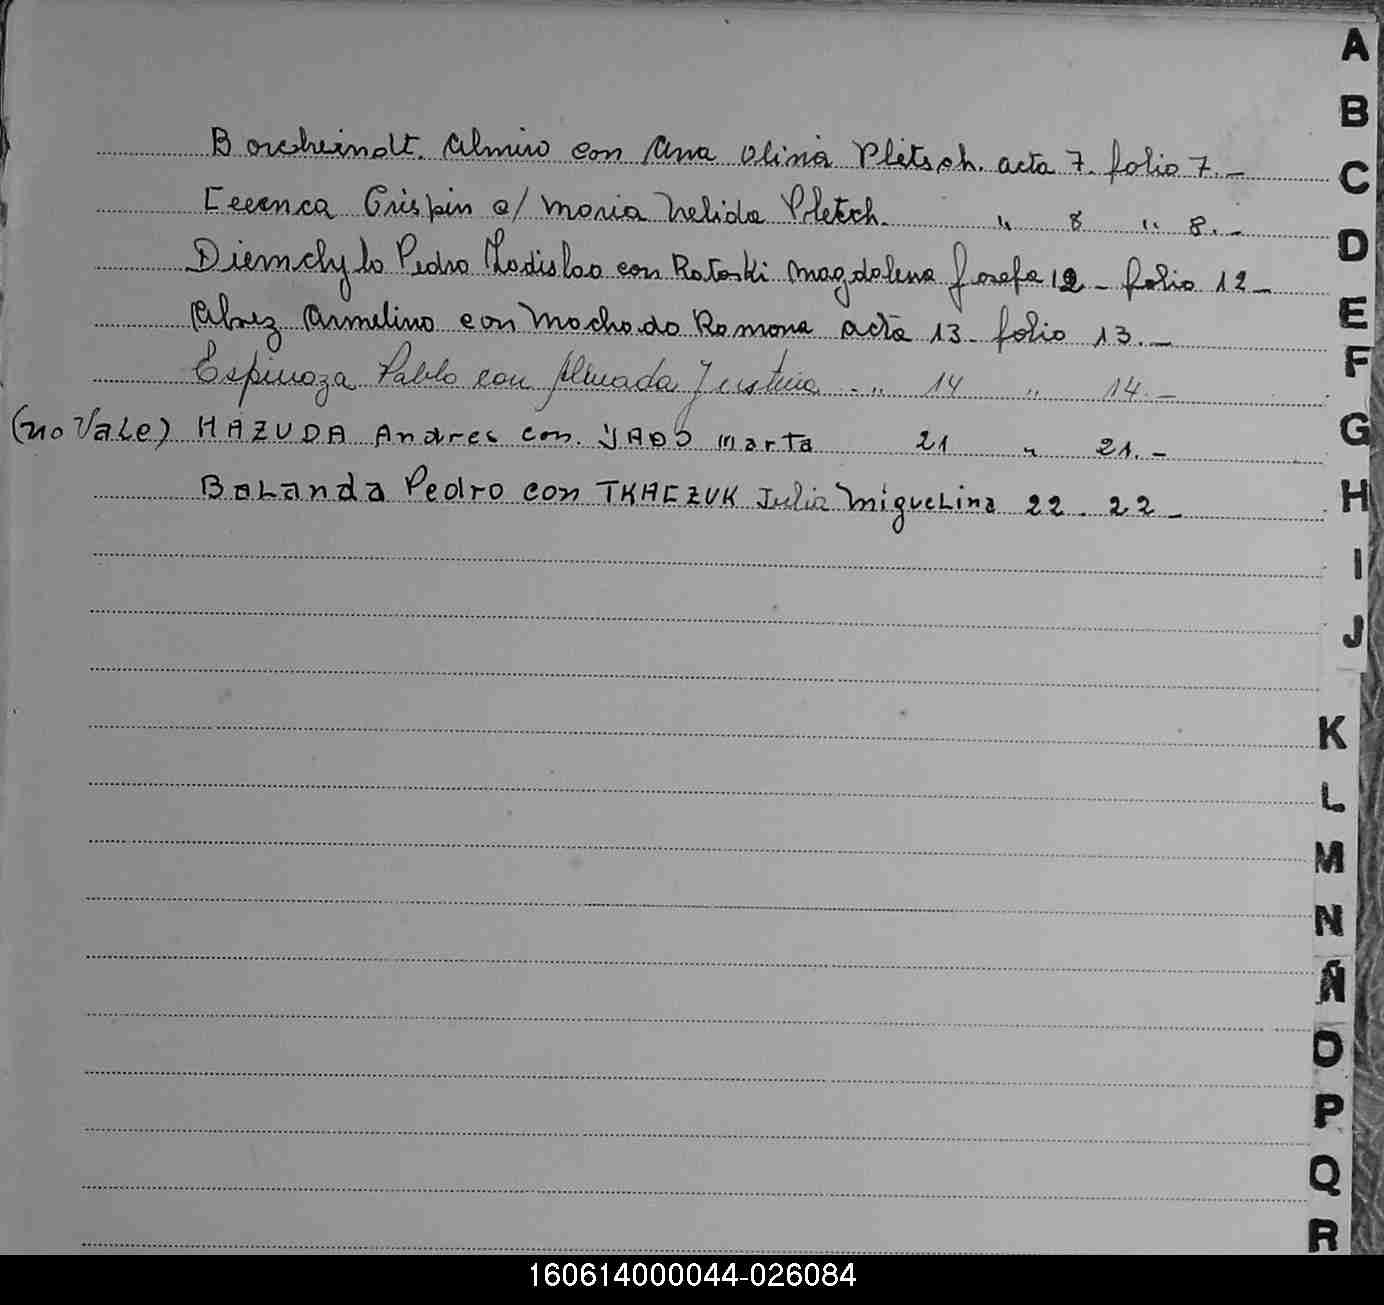 Borcheindt. Almiro con Ana Olina Pletsch. acta 7. folio 7.-
Crispin c/ Maria Nelida Pletsch. " 8 " 8.-
Diemchylo Pedro Ladislao con Ratoski Magdalena Josefa 12 - folio 12-
Armelino con Machado Ramona acta 13- folio 13.-
Espinoza Pablo con Almada Justina - " 14 " 14.-
(no Vale) HAZUDA Andres con. Marta 21 " 21.-
BaLanda Pedro con TKACZUK Julia MigueLina 22 - 22-
A
B
C
D
E
F
G
H
I
J
K
L
M
N
Ñ
O
P
Q
R
160614000044-026084